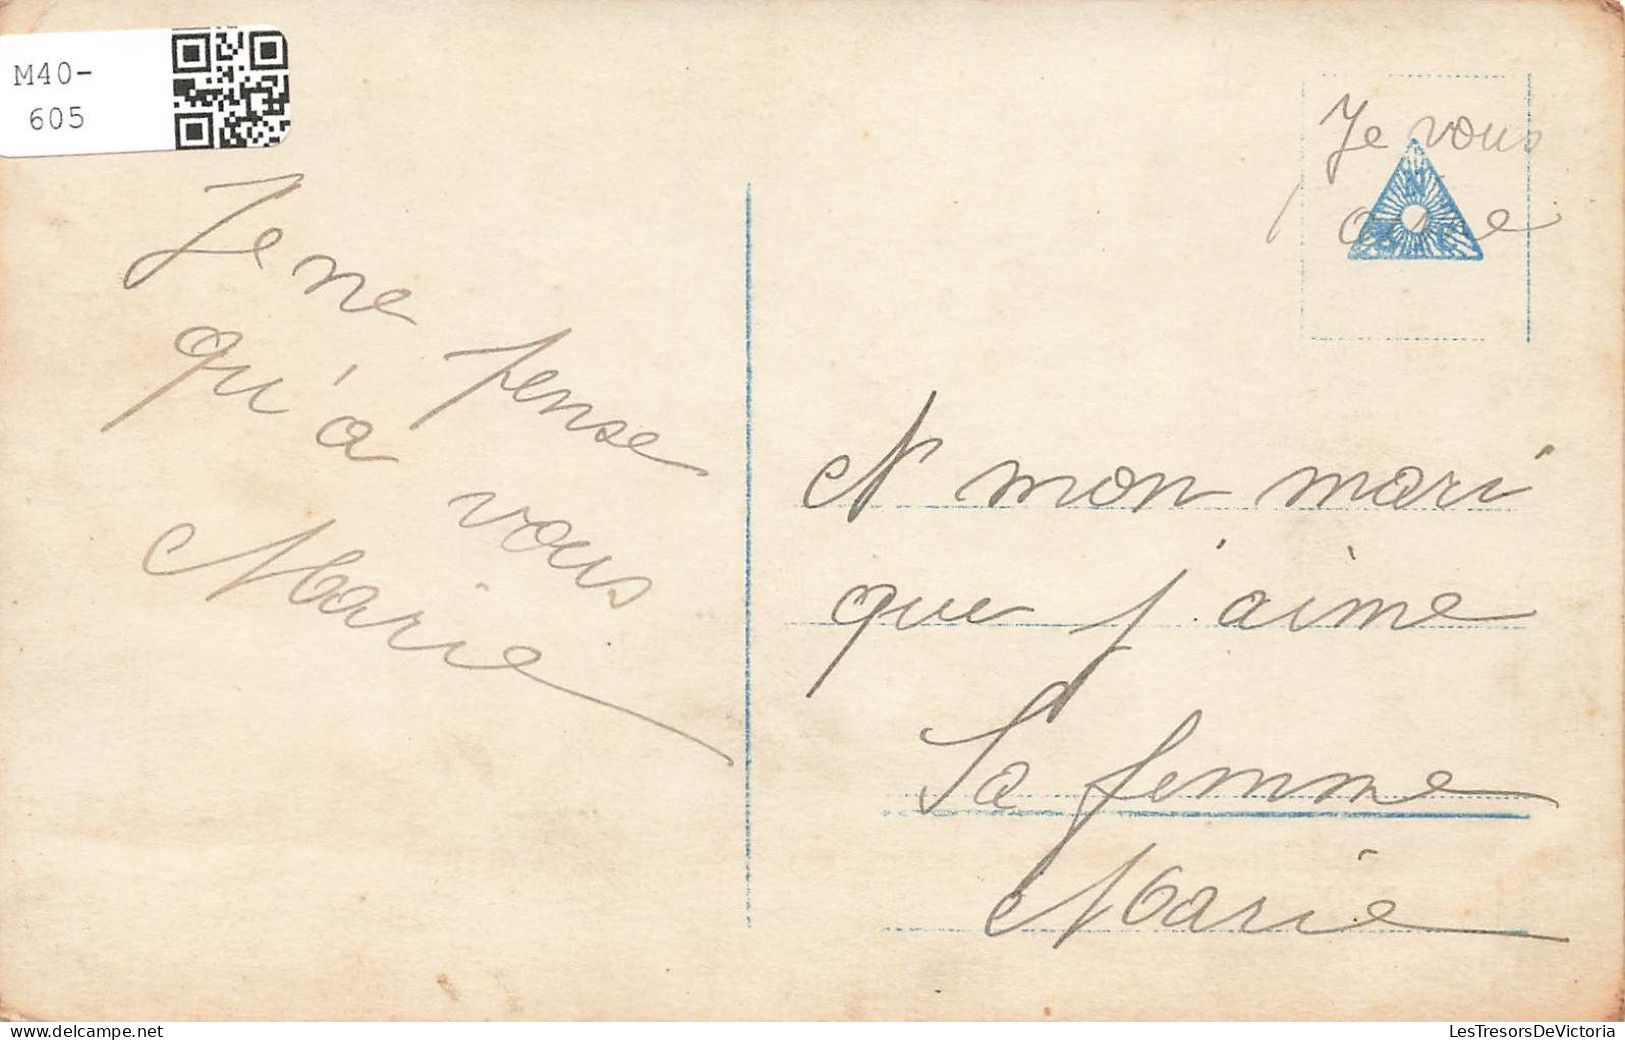 M40-
605
Je vous
aime
N
B C
Je ne pense
qu'à vous
Marie
A mon mari
que j'aime
Sa femme
Marie
delcampe.net
LesTresorsDeVictoria